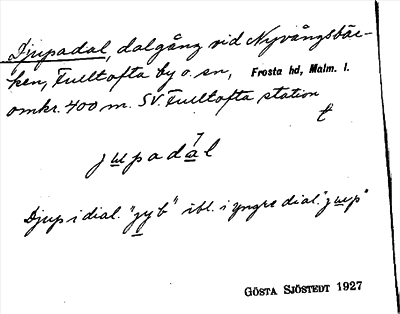 Djupadal, dalgång vid Nyvångsbäc-
ken, Fulltofta by o. sn, Frosta hd, Malm. l.
omkr. 400 m. SV. Fulltofta station
t
jupadal
Djup i dial. "jyb" ibl. i yngre dial. "jup"
GÖSTA SJÖSTEDT 1927